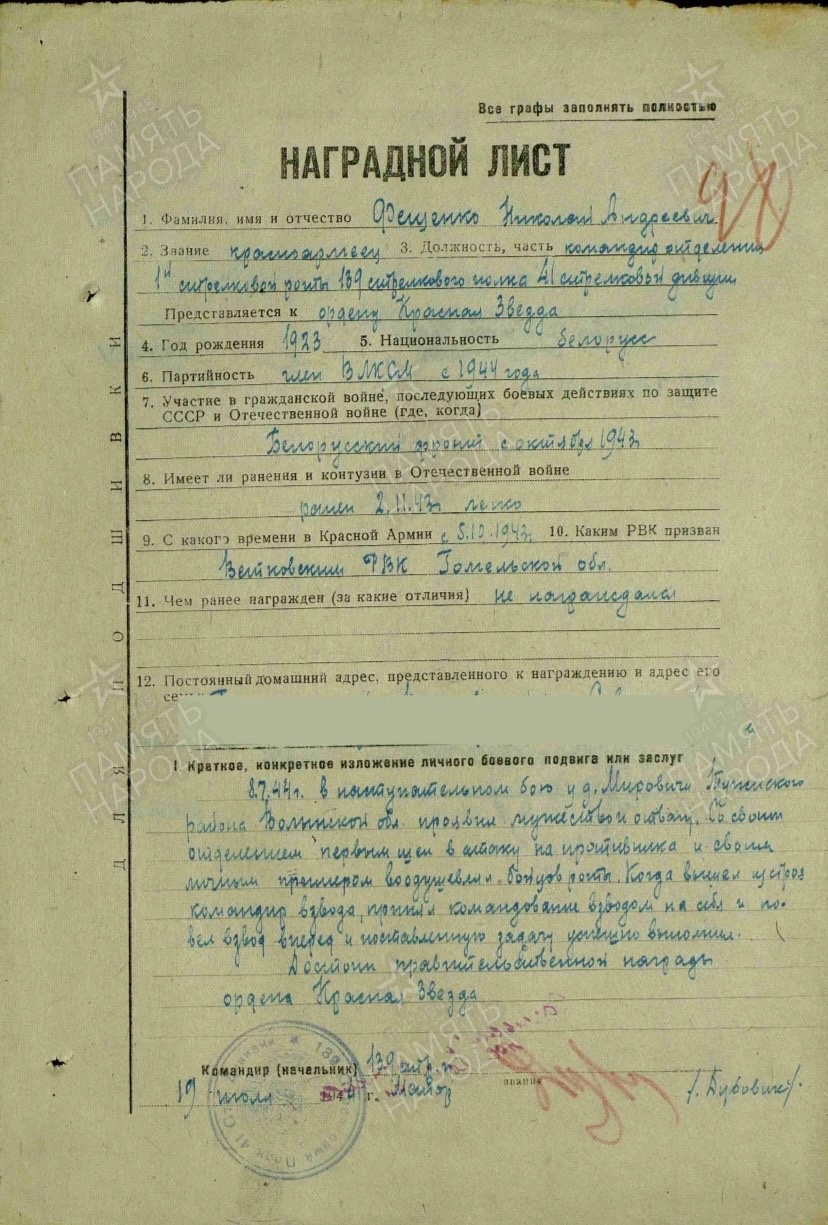 Все графы заполнять полностью
НАГРАДНОЙ ЛИСТ
1. Фамилия, имя и отчество Фещенко Николай Андреевич
2. Звание красноармеец 3. Должность, часть командир отделения
1й стрелковой роты 139 стрелкового полка 41 стрелковой дивизии
Представляется к ордену Красная Звезда
4. Год рождения 1923 5. Национальность белорусс
6. Партийность член ВЛКСМ с 1944 года
7. Участие в гражданской войне, последующих боевых действиях по защите
СССР и Отечественной войне (где, когда)
Белорусский фронт с октября 1943
8. Имеет ли ранения и контузии в Отечественной войне
ранен 2.11.43г легко
9. С какого времени в Красной Армии с 5.10.1943г 10. Каким РВК призван
Ветковским РВК Гомельской обл.
11. Чем ранее награжден (за какие отличия) не награждался
12. Постоянный домашний адрес, представленного к награждению и адрес его
I. Краткое, конкретное изложение личного боевого подвига или заслуг
8.7.44г. в наступательном бою у д. Мировичи
района Волынской обл. проявил мужество и отвагу. Со своим
отделением первым шел в атаку на противника и своим
личным примером воодушевлял бойцов роты. Когда вышел из строя
командир взвода, принял командование взводом на себя и по-
вел взвод вперед и поставленную задачу успешно выполнил.
Достоин правительственной награды
ордена Красная Звезда
Командир (начальник) 139 стр. п.
19 июля 1944 г. Майор звание /Дубовик/.
ДЛЯ ПОДШИВКИ
98
ПАМЯТЬ НАРОДА